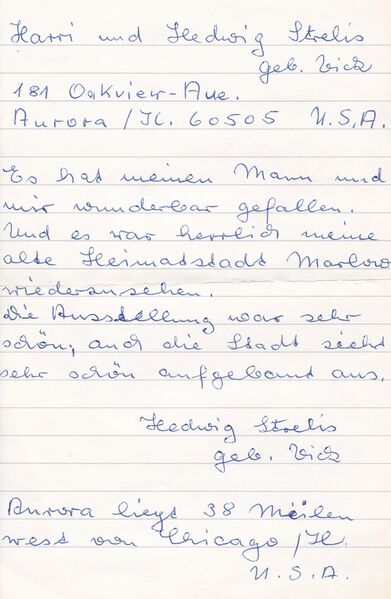 Harri und Hedwig Strelis
geb. Vick
181 Oakview-Ave.
Aurora / Il. 60505 U.S.A.
Es hat meinen Mann und
mir wunderbar gefallen.
Und es war herrlich meine
alte Heimatstadt Marlow
wiederzusehen.
Die Ausstellung war sehr
schön, auch die Stadt sieht
sehr schön aufgebaut aus.
Hedwig Strelis
geb. Vick
Aurora liegt 38 Meilen
west von Chicago / Il.
U.S.A.